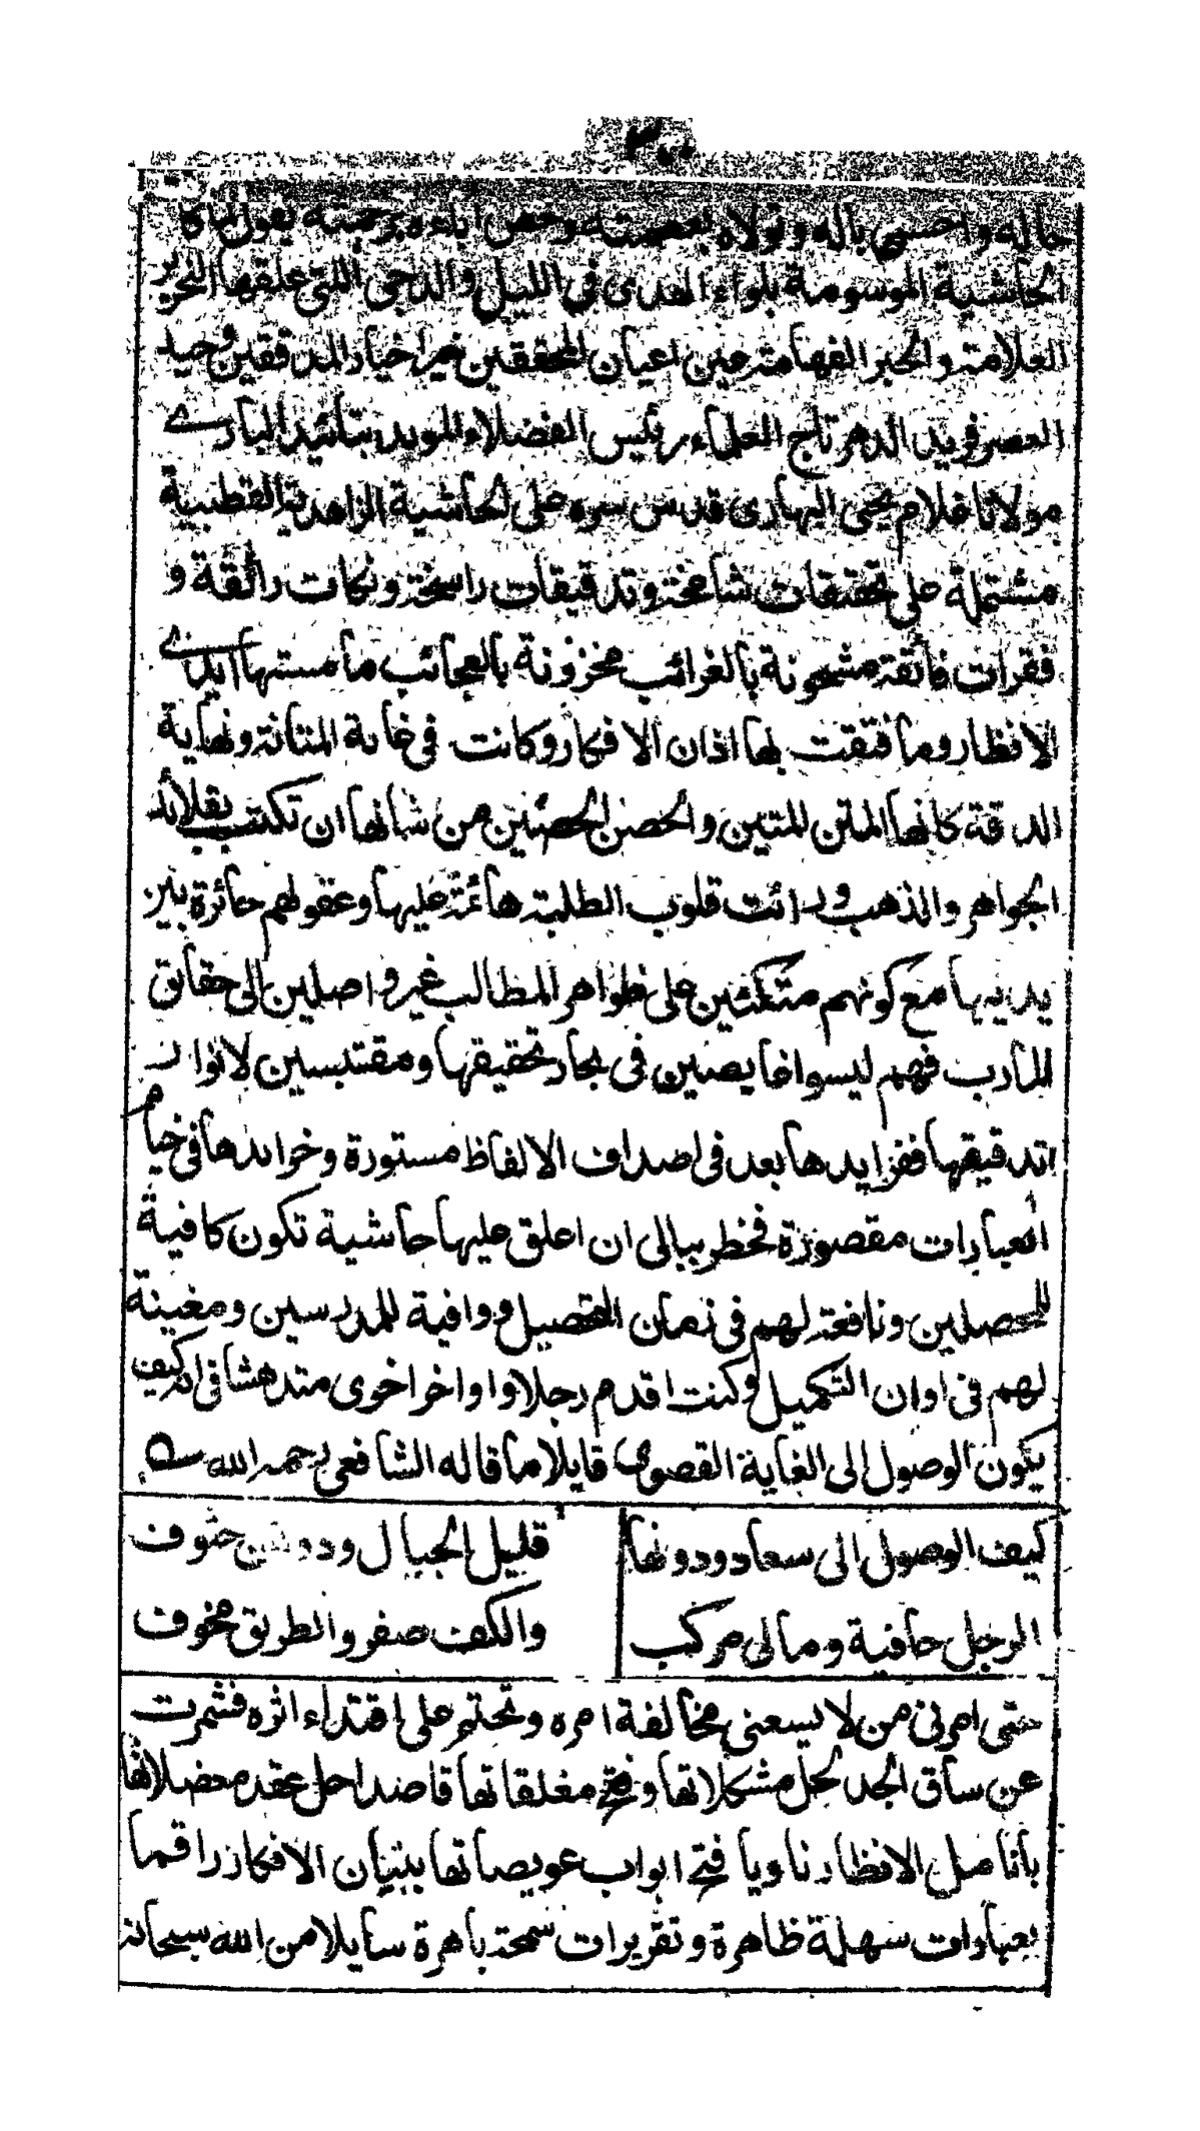 حاله واحسن باله وتولاه بعصمته وخص اباءه برحمته يقول لما كا
الحاشية الموسومة بلواء الهدى فى الليل والدجى اللتى علقها النحرير
العلامة والحبر الفهامة عين اعيان المحققين خير اخيار المدققين وحيد
العصر فريد الدهر تاج العلماء رئيس الفضلاء المويد بتائيد البارے
مولانا غلام يحيى البهارى قدس سره على الحاشية الزاهدية القطبية
مشتملة على تحقيقات شامخة وتدقيقات راسخة ونكات رائقة و
فقرات فائقة مشحونة بالغرائب مخزونة بالعجائب ما مستها ايدے
الانظار وما فتقت بها اذان الافكار وكانت فى غاية المتانة ونهاية
الدقة كانها المتن المتين والحصن الحصين من شانها ان تكتب بقلائد
الجواهر والذهب ورائت قلوب الطلبة هائمة عليها وعقولهم حائرة بين
يديها مع كونهم متكئين على ظواهر المطالب غير واصلين الى حقايق
المارب فهم ليسوا غايصين فى بحار تحقيقها ومقتبسين لانوار
تدقيقها ففرايدها بعد فى اصداف الالفاظ مستورة وخرايدها فى خيام
العبارات مقصورة فخطر ببالى ان اعلق عليها حاشية تكون كافية
للمحصلين ونافعة لهم فى زمان التحصيل ووافية للمدرسين ومغينة
لهم فى اوان التكميل وكنت اقدم رجلا واواخر اخرى متدهشا فى انه كيف
يكون الوصول الى الغاية القصوى قايلا ما قاله الشافعى رحمه الله
كيف الوصول الى سعاد ودونها قليل الجبال ودونهن حتوف
الرجل حافية ومالى مركب والكف صفر والطريق مخوف
حتى امرنى من لا يسعنى مخالفة امره وتحتم على اقتداء اثره فشمرت
عن ساق الجد لحل مشكلاتها وفتح مغلقاتها قاصدا حل عقد معضلاتها
بانامل الانظار ناويا فتح ابواب عويصاتها ببنيان الافكار راقما
بعبارات سهلة ظاهرة وتقريرات سمحة باهرة سايلا من الله سبحانه